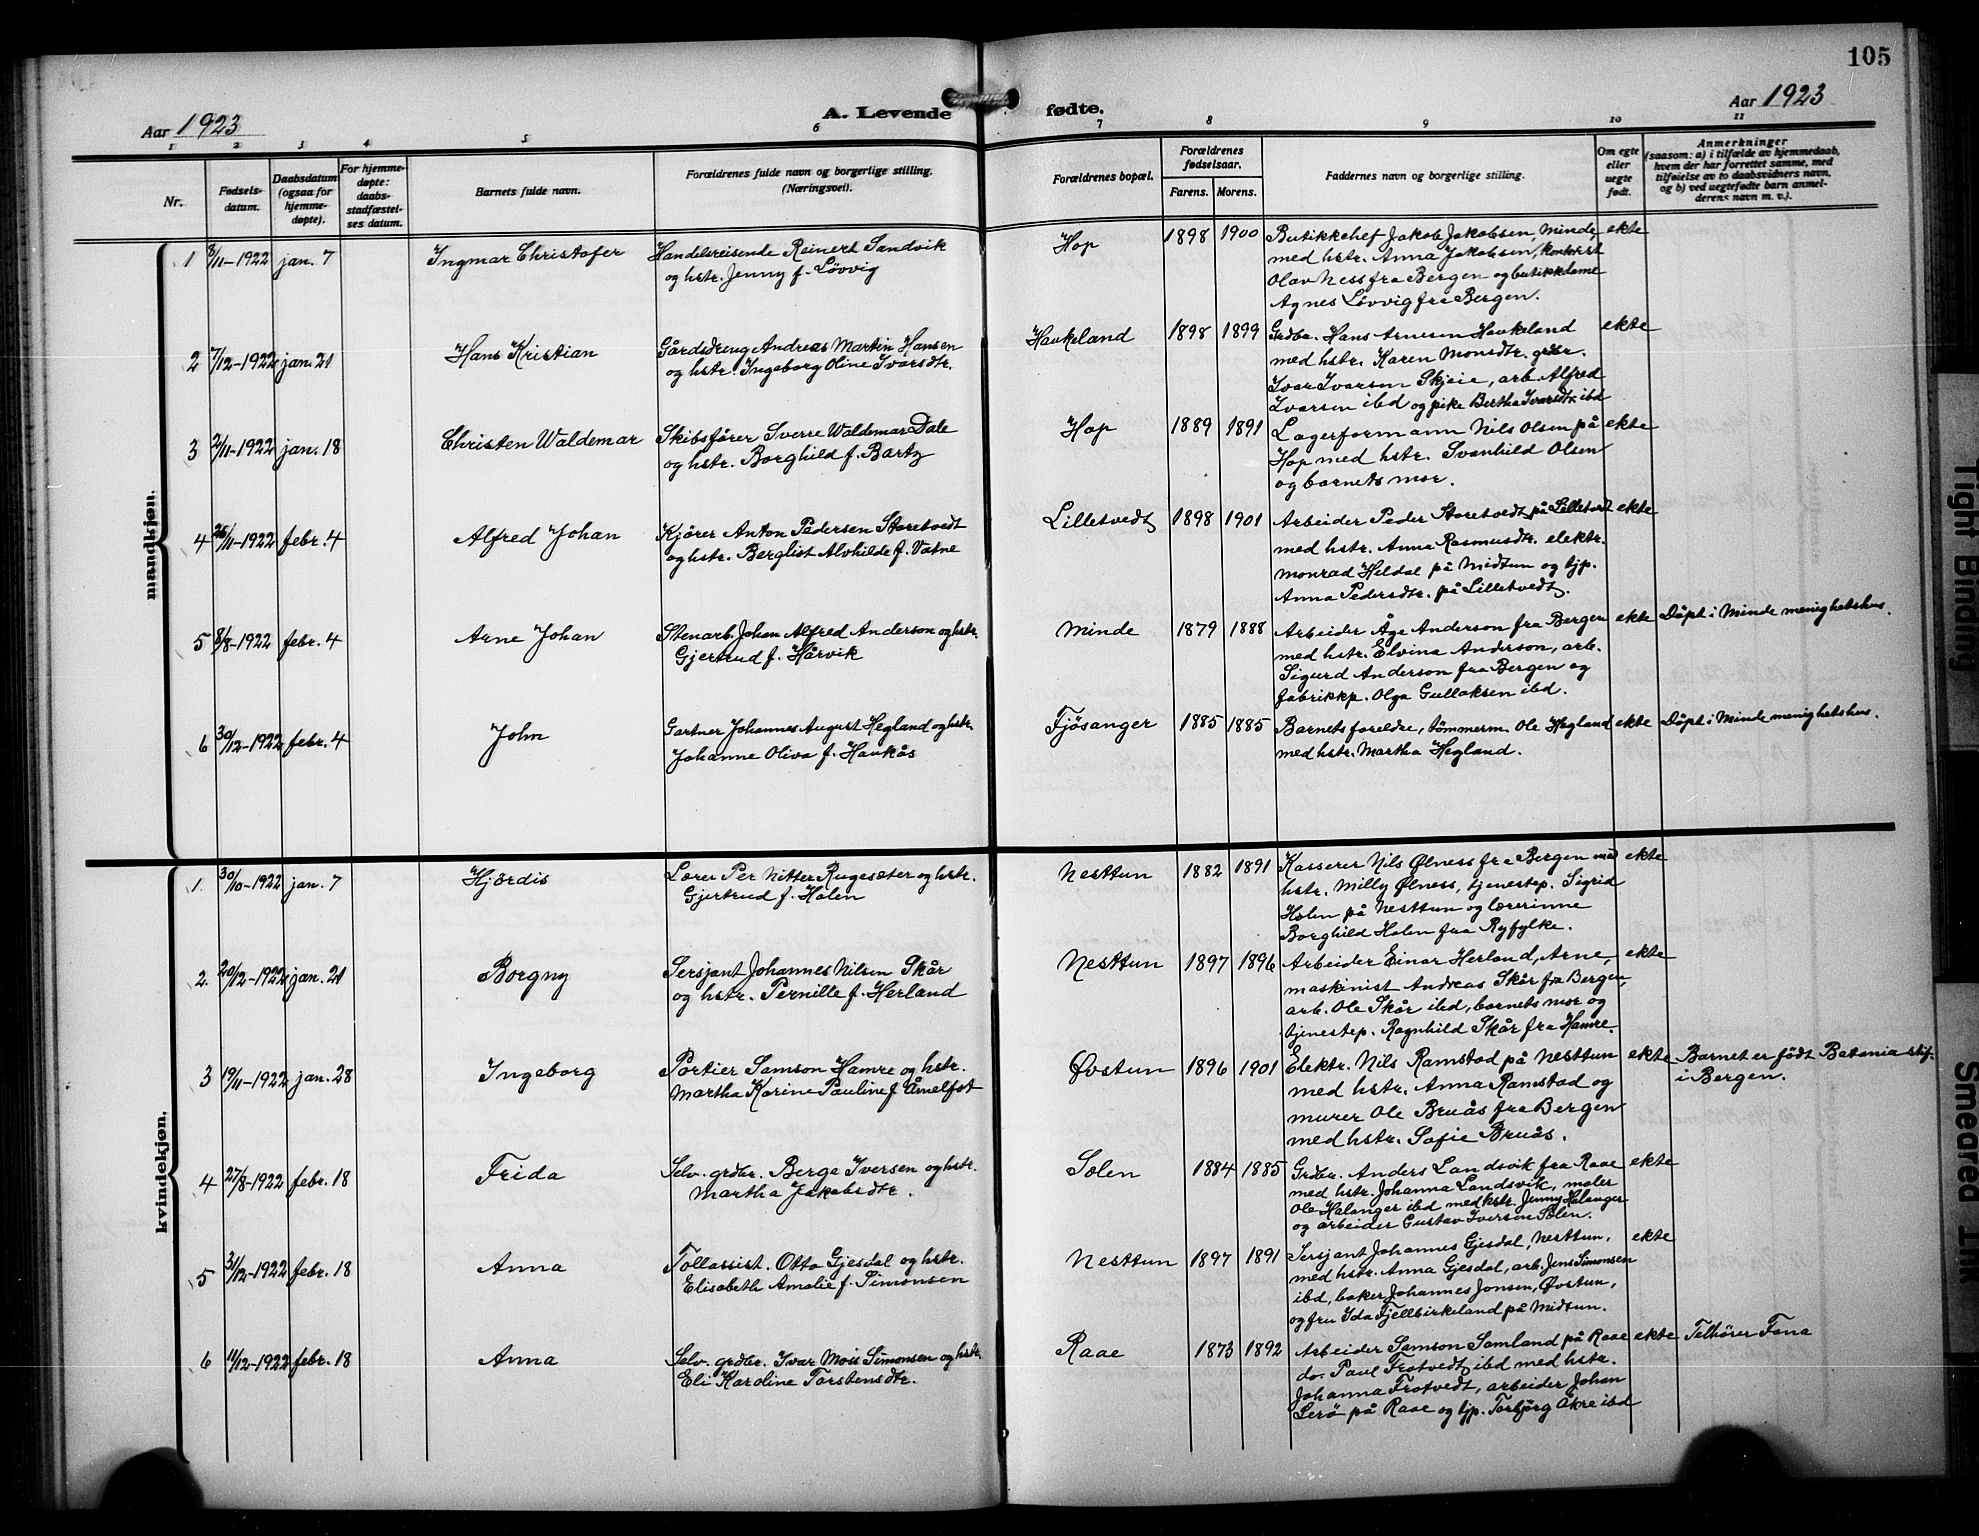 105
Aar 1923
A. Levende fødte.
Aar 1923
1 2 3 4 5 6 7 8 9 10 11
Nr.
Fødsels-
datum.
Daabsdatum
(ogsaa for
hjemme-
døpte).
For hjemme-
døpte:
daabs-
stadfæstel-
ses datum.
Barnets fulde navn.
Forældrenes fulde navn og borgerlige stilling.
(Næringsvei).
Forældrenes bopæl.
Forældrenes
fødselsaar.
Farens. Morens.
Faddernes navn og borgerlige stilling.
Om egte
eller
uegte
født.
Anmerkninger
(saasom: a) i tilfælde av hjemmedaab,
hvem der har forrettet samme, med
tilføielse av to daabsvidners navn,
og b) ved uegtefødte barn anmel-
derens navn m. v.).
mandkjøn.
1 8/11-1922 jan. 7 Ingmar Christofer
Handelsreisende Reinert Sandvik
og hstr. Jenny f. Løvvig
Hop 1898 1900
Butikkchef Jakob Jakobsen, Minde,
med hstr. Anna Jakobsen, kontorist
Olav Ness fra Bergen og butikkdame
Agnes Løvvig fra Bergen.
ekte
2 7/12-1922 jan. 21 Hans Kristian
Gårdsdreng Andreas Martin Hansen
og hstr. Ingeborg Oline Ivarsdtr.
Haukeland 1898 1899
Grdbr. Hans Arnesen Haukeland
med hstr. Karen Monsdtr. grdbr.
Ivar Ivarsen Skjeie, arb. Alfred
Ivarsen ibd og pike Bertha Ivarsdtr. ibd
ekte
3 2/11-1922 jan. 18 Christen Waldemar
Skibsfører Sverre Waldemar Dale
og hstr. Borghild f. Bartz
Hop 1889 1891
Lagerformann Nils Olsen på
Hop med hstr. Svanhild Olsen
og barnets mor.
ekte
4 26/11-1922 febr. 4 Alfred Johan
Kjører Anton Pedersen Storetvedt
og hstr. Berglist Alvhilde f. Vatne
Lilletvedt 1898 1901
Arbeider Peder Storetvedt på Lilletvedt
med hstr. Anna Rasmusdtr. elektr.
Monrad Heldal på Midtun og tjp.
Anna Pedersdtr. på Lilletvedt.
ekte
5 8/8-1922 febr. 4 Arne Johan
Stenarb. Johan Alfred Anderson og hstr.
Gjertrud f. Hårvik
Minde 1879 1888
Arbeider Åge Anderson fra Bergen
med hstr. Elvina Anderson, arb.
Sigurd Anderson fra Bergen og
fabrikkp. Olga Gullaksen ibd.
ekte
Døpt i Minde menighetshus.
6 30/12-1922 febr. 4 John
Gartner Johannes August Hegland og hstr.
Johanne Oliva f. Haukås
Fjøsanger 1885 1885
Barnets foreldre, tømmerm. Ole Hegland
med hstr. Martha Hegland.
ekte
Døpt i Minde menighetshus.
kvindekjøn.
1. 30/10-1922 jan. 7 Hjørdis
Lærer Per Nitter Rugesæter og hstr.
Gjertrud f. Holen
Nesttun 1882 1891
Kasserer Nils Ølness fra Bergen med
hstr. Milly Ølness, tjenestep. Sigrid
Holen på Nesttun og lærerinne
Borghild Holen fra Ryfylke.
ekte
2. 20/12-1922 jan. 21 Borgny
Sersjant Johannes Nilsen Skår
og hstr. Pernille f. Herland
Nesttun 1897 1896
Arbeider Einar Herland, Arne,
maskinist Andreas Skår fra Bergen,
arb. Ole Skår ibd, barnets mor og
tjenestep. Ragnhild Skår fra Hamre.
ekte
3 19/11-1922 jan. 28 Ingeborg
Portier Samson Hamre og hstr.
Martha Karine Pauline f. Åmelfot
Øvstun 1896 1901
Elektr. Nils Ramstad på Nesttun
med hstr. Anna Ramstad og
murer Ole Bruås fra Bergen
med hstr. Sofie Bruås.
ekte
Barnet er født Betania stif.
i Bergen.
4 27/8-1922 febr. 18 Frida
Selv. grdbr. Berge Iversen og hstr.
Martha Jakobsdtr.
Solen 1884 1885
Grdbr. Anders Landsvik fra Raae
med hstr. Johanna Landsvik, maler
Ole Halanger ibd med hstr. Jenny Halanger
og arbeider Gustav Iversen Solen.
ekte
5 31/12-1922 febr. 18 Anna
Tollassist. Otto Gjesdal og hstr.
Elisabeth Amalie f. Simonsen
Nesttun 1897 1891
Sersjant Johannes Gjesdal, Nesttun,
med hstr. Anna Gjesdal, arb. Jens Simonsen
ibd, baker Johannes Jonsen, Øvstun,
og fru Ida Fjellbirkeland på Midtun.
ekte
6 11/12-1922 febr. 18 Anna
Selv. grdbr. Ivar Mois Simonsen og hstr.
Eli Karoline Torstensdtr.
Raae 1873 1892
Arbeider Samson Samland på Raae
do. Paul Frotvedt ibd med hstr.
Johanna Frotvedt, arbeider Johan
Lerø på Raae og tjp. Torbjørg Åkre ibd
ekte
Telhører Fana
Tight Binding
Smeared Ink